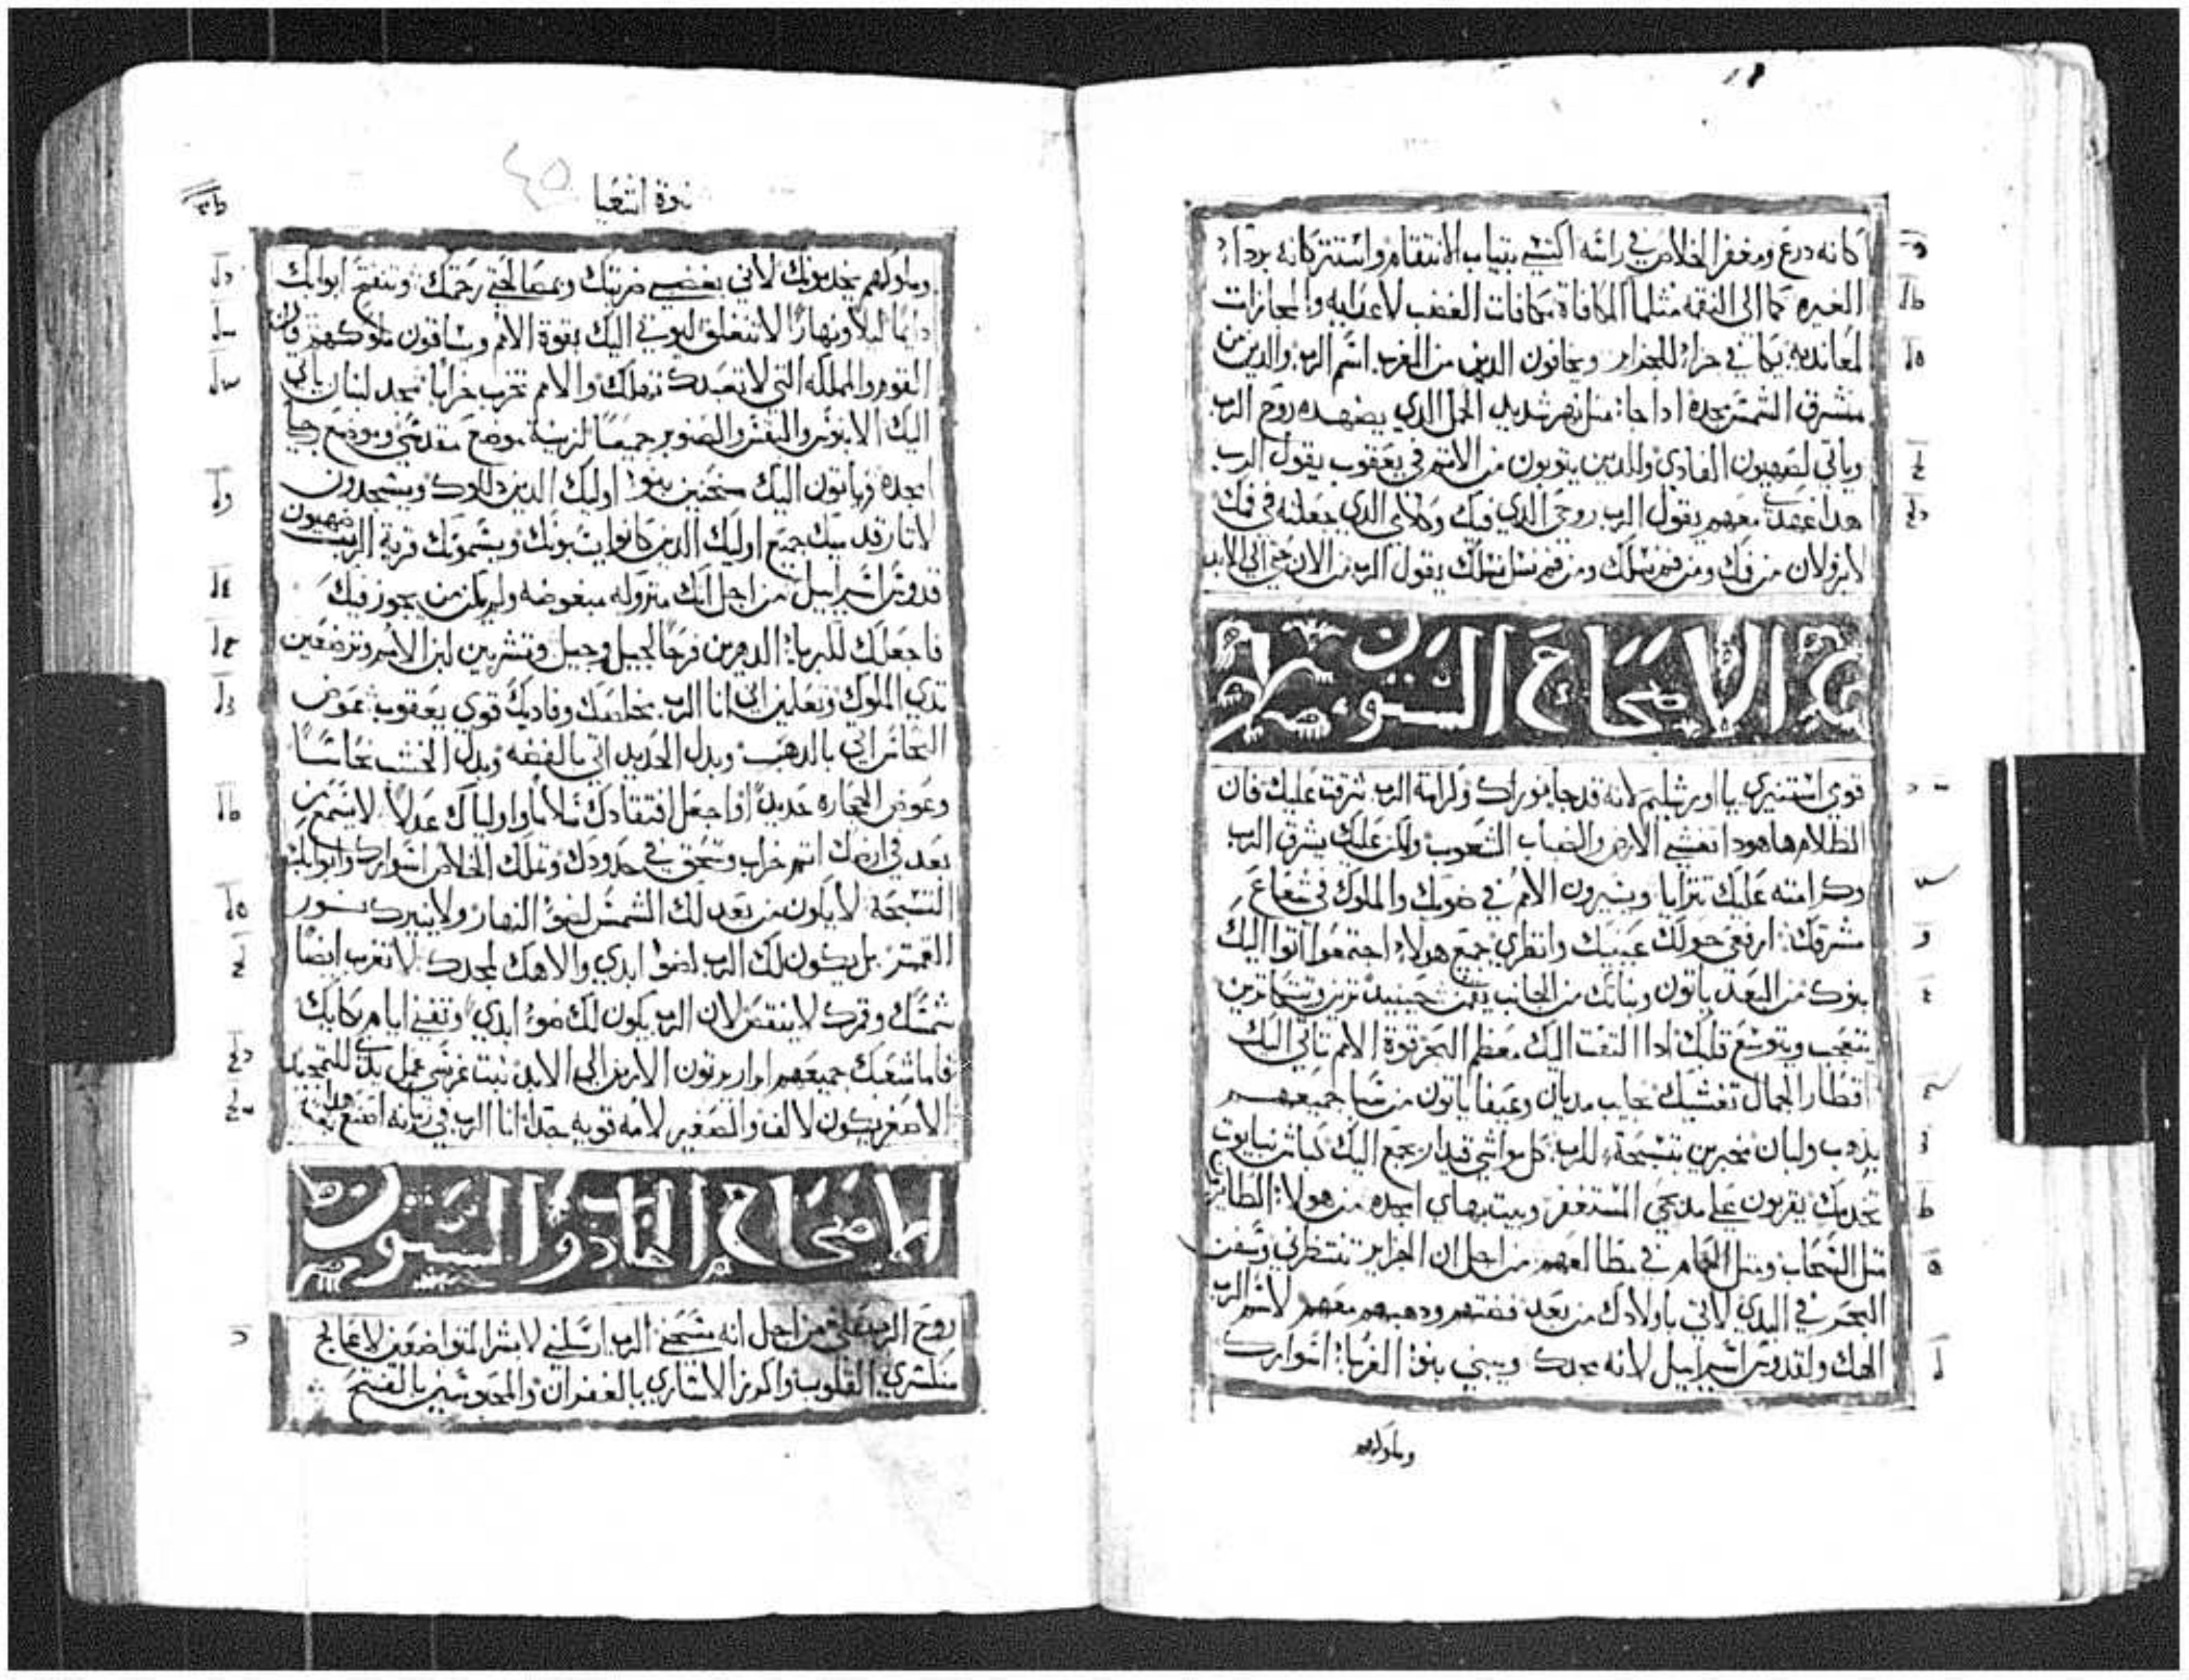 كانه درع ومغفر الخلاص في راسه اكتسي بتياب الانتقام واستتر كانه بردا
الغيره كما الى النقمه متلما المكافاة مكافات الغضب لاعدايه والمجازات
لمعانديه يكافي جزاء للجزاير ويخافون الدين من الغرب اسم الرب والدين من
مشرق الشمس مجده ادا جا متل نهر شديد الحمل الدي يضهده روح الرب
وياتي لصهيون الفادي وللدين يتوبون من الاتم في يعقوب يقول الرب
هدا عهدي معهم يقول الرب روحي الدي فيك وكلامي الدي جعلته في فمك
لا يزولان من فمك ومن فم نسلك ومن فم نسل نسلك يقول الرب من الان حتي الي الابد
الاصحاح الستون
قومي استنيري يا اورشليم لانه قد جا نورك وكرامة الرب شرقت عليك فان
الظلام هاهودا تغشي الارض والضباب الشعوب ولكن عليك يشرق الرب
وكرامته عليك تترايا ويسيرون الامم في ضويك والملوك في شعاع
مشرقك ارفعي حولك عينيك وانظري جميع هولاء اجتمعوا اتوا اليك
بنوك من البعد ياتون وبناتك من الجانب يقمن حينيد تريـن وتتكاترين
يتعجب ويتوسع قلبك ادا التفت اليك معظم البحر قوة الامم تاتي اليك
اقطار الجمال تغشيك نجايب مديان وعيفا ياتون من سبا جميعهم
بدهب ولبان مخبرين بتسبحة للرب كل مواشي قيدار يجمع اليك كباش نبايوت
تخدمك يقربون علي مدبحي المستغفر وبيت بهاي امجده من هولا الطايرين
متل السحاب ومتل الحمام في مطالعهم من اجل ان الجزاير تنتظرني وسفن
البحر في البدي لاتي باولادك من بعد فضتهم ودهبهم معهم لاسم الرب
الهك ولقدوس اسراييل لانه مجدك ويبني بنوا الغربا اسوارك
وملوكهم
نبوة اشعيا
٤٥
وملوكهم يخدمونك لاني بغضبي ضربتك وبمصالحتي رحمتك وتنفتح ابوابك
دايما ليلا ونهارا لا تنغلق ليوتي اليك بقوة الامم وساقون ملوكهم فان
القوم والمملكه التي لا تعبدك تهلك والامم تخرب خرابا مجد لبنان ياتي
اليك الابنوس والبقس والصنوبر جميعا لزينة موضع مقدسي وموضع رجليا
امجده وياتون اليك منحنين بنوا اوليك الدين دللوك ويسجدون
لاتار قدميك جميع اوليك الدين كانوا يسبونك ويسمونك قرية الرب صهيون
قدوس اسراييل من اجل انك متروله مبغوضه ولم يكن من يجوز فيك
فاجعلك لكبريا الدهرين فرحا لجيل وجيل وتشربين لبن الامم وترضعين
تدي الملوك وتعلمين اني انا الرب مخلصك وفاديك قوي يعقوب عوض
النحاس اتي بالدهب وبدل الحديد اتي بالفضه وبدل الخشب نحاسا
وعوض الحجاره حديدا واجعل افتقادك سلاما وولياك عدلا لا يسمع
بعد في ارضك اتم خراب وسحق في حدودك وتملك الخلاص اسوارك وابوابك
التسبحة لا يكون من بعد لك الشمس لضوء النهار ولا ينيرك نور
القمر بل يكون لك الرب لضوء ابدي والاهك لمجدك لا تغرب ايضا
شمسك وقمرك لا ينتقص لان الرب يكون لك ضوء ابدي وتفني ايام بكايك
فاما شعبك جميعهم ابرار يرتون الارض الي الابد نبت غرسي عمل يدي للتمجيد
الاصغر يكون لالف والصغير لامه قويه جدا انا الرب في زمانه اصنع هدا بغتة
الاصحاح الحادي والستون
روح الرب علي من اجل انه مسحني الرب ارسلني لابشر المتواضعين لاعالج
منكسري القلوب واكرز الاساري بالغفران والمحبوسين بالفتح